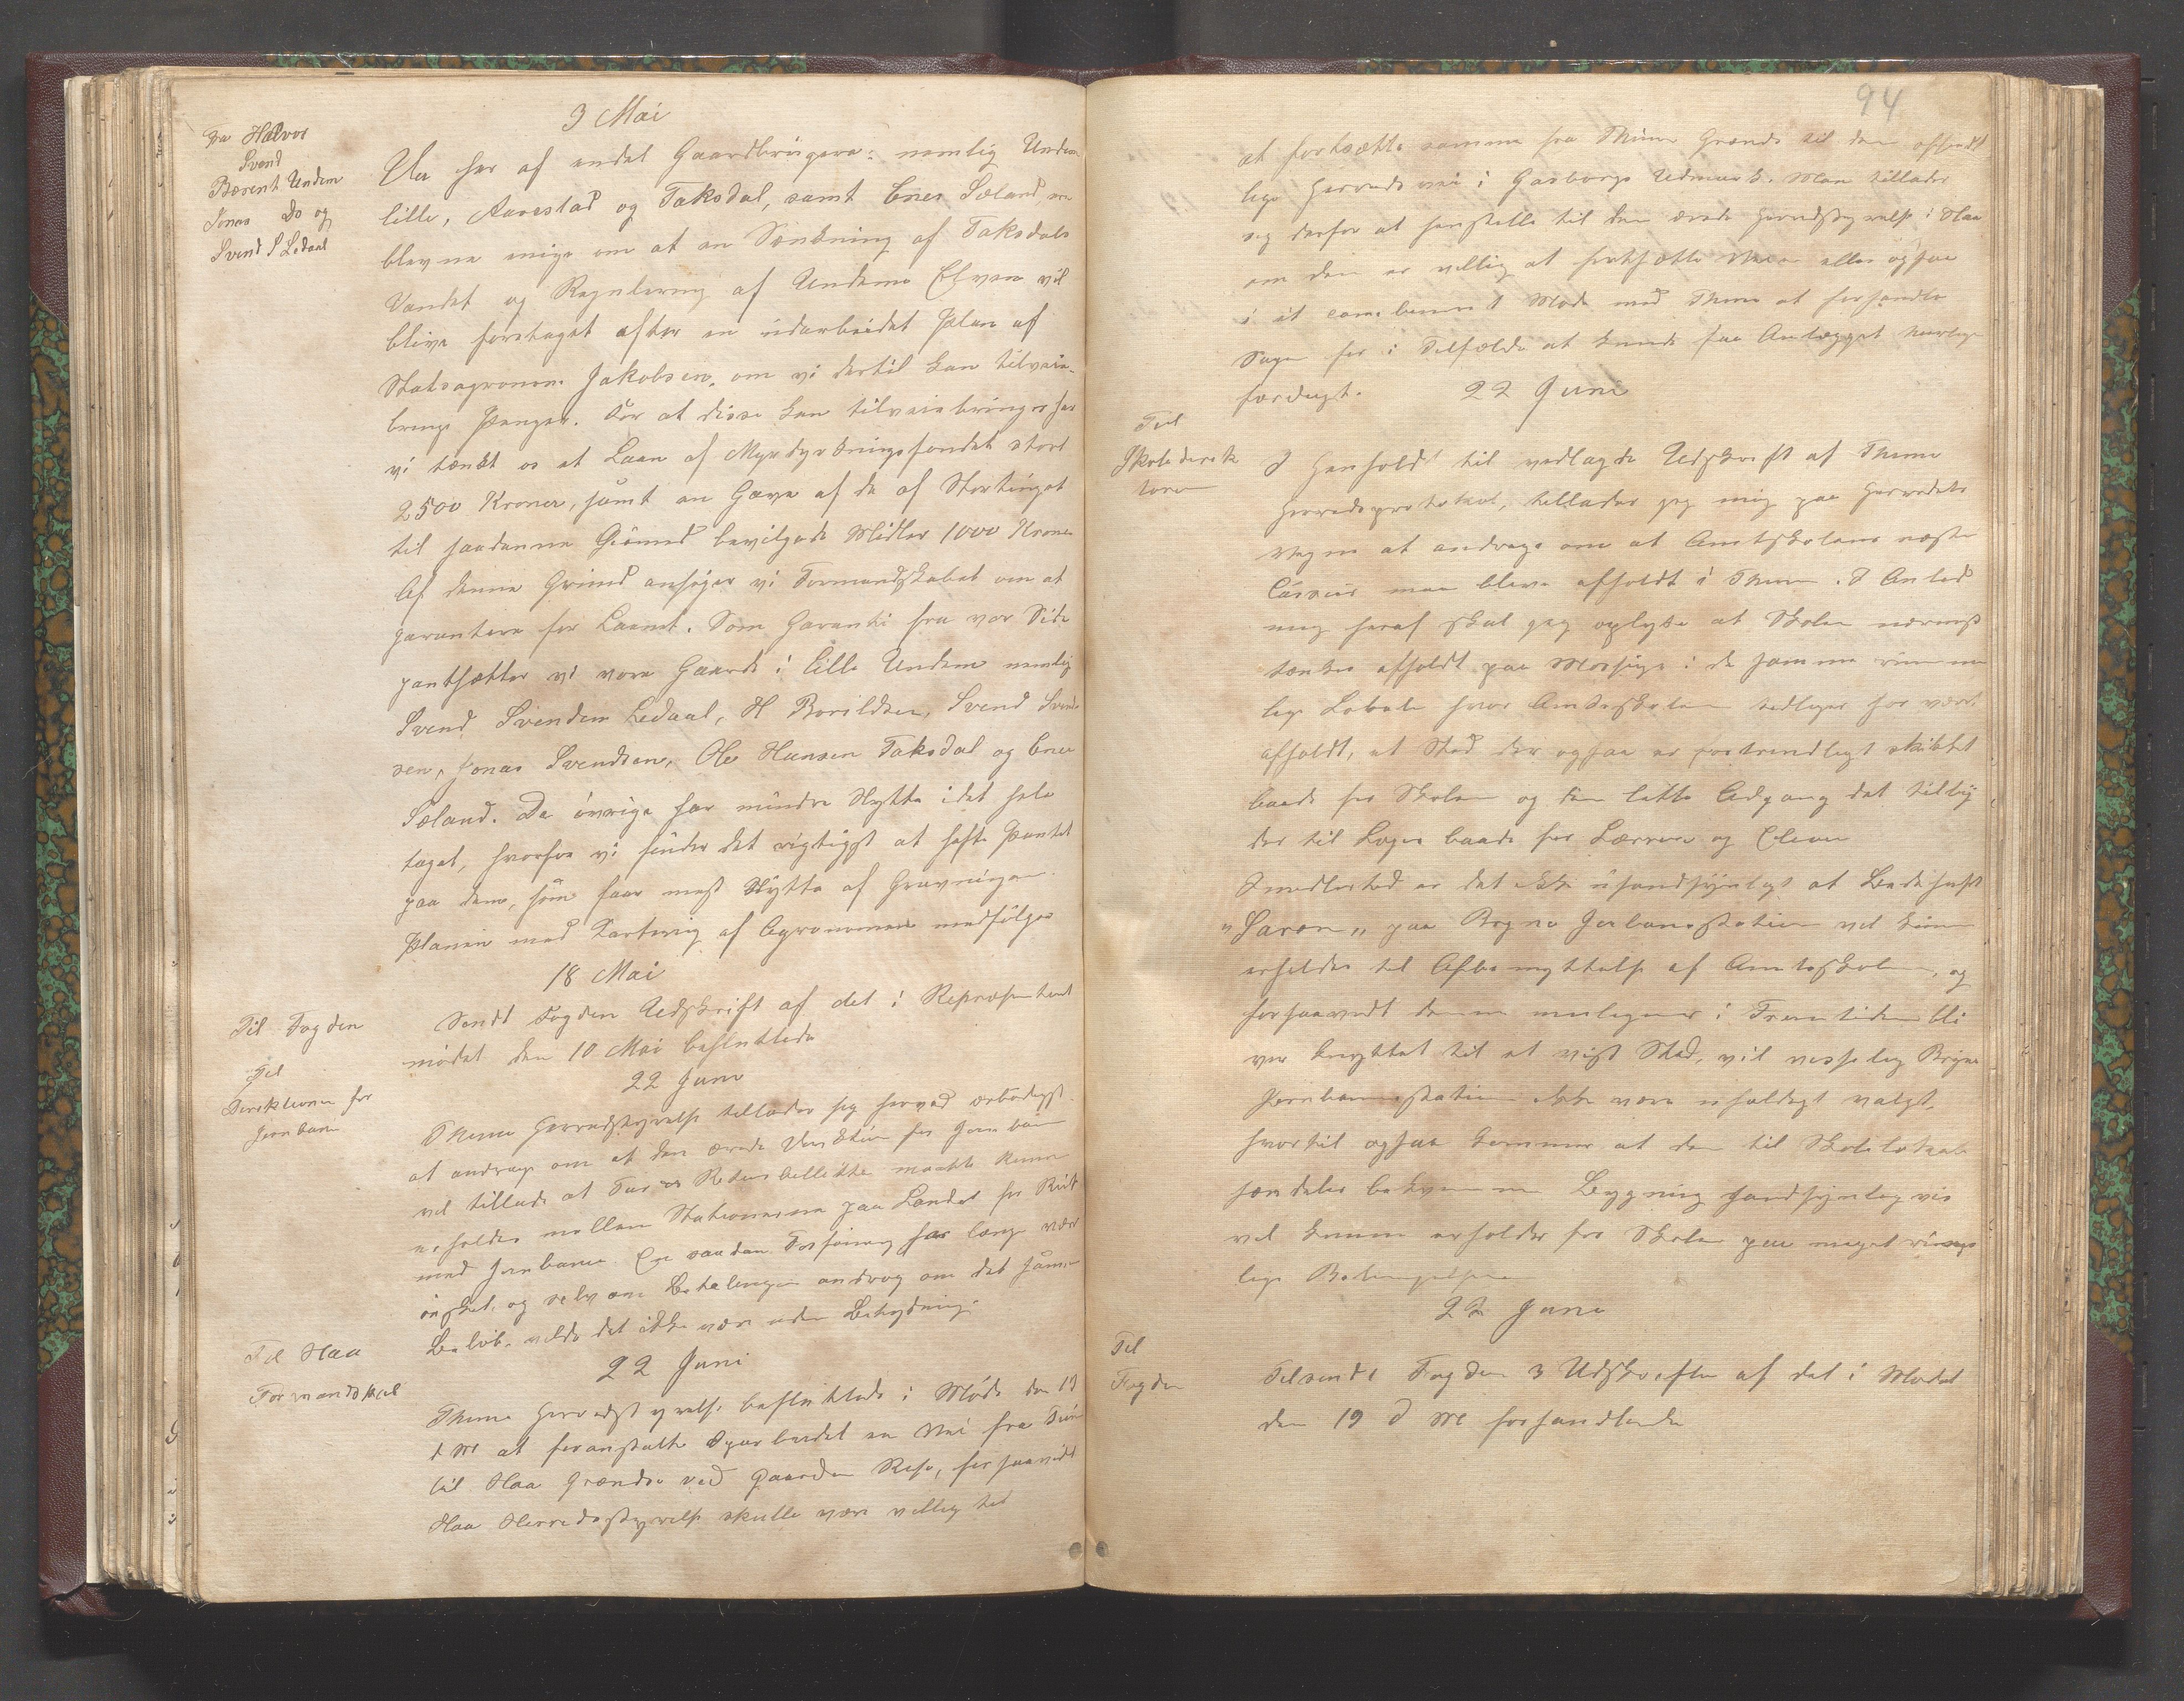 3 Mai
Fra Halvor
Svend
Bærent Undem
Jonas Do og
Svend S Ledaal
Da her af endel Gaardbrugere: nemlig Undem
lille, Aarestad og Taksdal, samt Enes Sæland, er
blevne enige om at en Sænkning af Taksdals
Vandet og Regulering af Undems Elven vil
blive foretaget efter en udarbeidet Plan af
Statsagronom Jakobsen, om vi dertil kan tilveie-
bringe Penger. For at disse kan tilveiebringes har
vi tænkt os et Laan af Myrdyrkningsfondet stort
2500 Kroner, samt en Gave af de af Stortinget
til saadanne Øiemed bevilgede Midler 1000 Kroner
Af denne Grund ansøger vi Formandskabet om at
garantere for Laanet. Som Garanti fra vor Side
pantsætter vi vore Gaarde i Lille Undem nemlig
Svend Svendsen Ledaal, H Borildsen, Svend Svend
sen, Jonas Svendsen, Ole Hansen Taksdal og Enes
Sæland. De øvrige har mindre Nytte i det hele
taget, hvorfor vi finder det rigtigst at hefte Pantet
paa dem, som faar mest Nytte af Gravningen.
Planen med Kartering af Agronomen medfølger
18 Mai
Til Fogden
Sendt Fogden Udskrift af det i Repræsentant
mødet den 10 Mai besluttede
22 Juni
Til
Direktionen for
Jernbanen
Thime Herredsstyrelse tillader sig herved ærbødigst
at andrage om at den ærede Direktion for Jernbanen
vil tillade at Tur og Returbilletter maatte kunne
erholdes mellem Stationerne paa Landet for Reise
med Jernbanen. En saadan Forføining har længe været
ønsket, og selv om Betalingen androg om det samme
Beløb, vilde det ikke være uden Betydning.
22 Juni
Til Haa
Formandskab
Thime Herredsstyrelse besluttede i Møde den 19
d M at foranstalte Oparbeidet en Vei fra Tun
til Haa Grændse ved Gaarden Re, forsaavidt
Haa Herredsstyrelse skulle være villig til
94
at fortsætte samme fra Thime Grænds til den offent
lige Herredsvei i Udmark. Man tillader
sig derfor at henstille til den ærede Herredsstyrelse i Haa
om den er villig at fortsætte Veien eller ogsaa
i et combineret Møde med Thime at forhandle
Sagen for i Tilfælde at kunde faa Anlægget
færdigt.
22 Juni
Til
Skoledirek
tøren
I Henhold til vedlagde Udskrift af Thime
Herredsprotokol, tillader jeg mig paa Herredets
Vegne at andrage om at Amtskolens næste
Cursus maa blive afholdt i Thime. I Anled
ning heraf skal jeg oplyse at Skolen nærmest
tænkes afholdt paa Mossige i de samme rumme
lige Lokale hvor Amtsskolen tidligere har vært
afholdt, et Sted der ogsaa er fortrindligt skikket
baade for Skolen og den lette Adgang det tilby
der til Logis baade for Lærere og Elever
Imidlertid er det ikke usandsynligt at Bedehuset
„Saron„ paa Bryne Jernbanestation vil kunne
erholdes til Afbenyttelse af Amtsskolen, og
forsaavidt denne muligens i Fremtiden bli
ver knyttet til et vist Sted, vil visselig Bryne
Jernbanestation ikke være uheldigt valgt,
hvortil ogsaa kommer at den til Skolelokale
særdeles bekvemme Bygning sandsynligvis
vil kunne erholdes for Skolen paa meget rime
lige Betingelser
22 Juni
Til
Fogden
Tilsendt Fogden 3 Udskrifter af det i Mødet
den 19 d M forhandlede